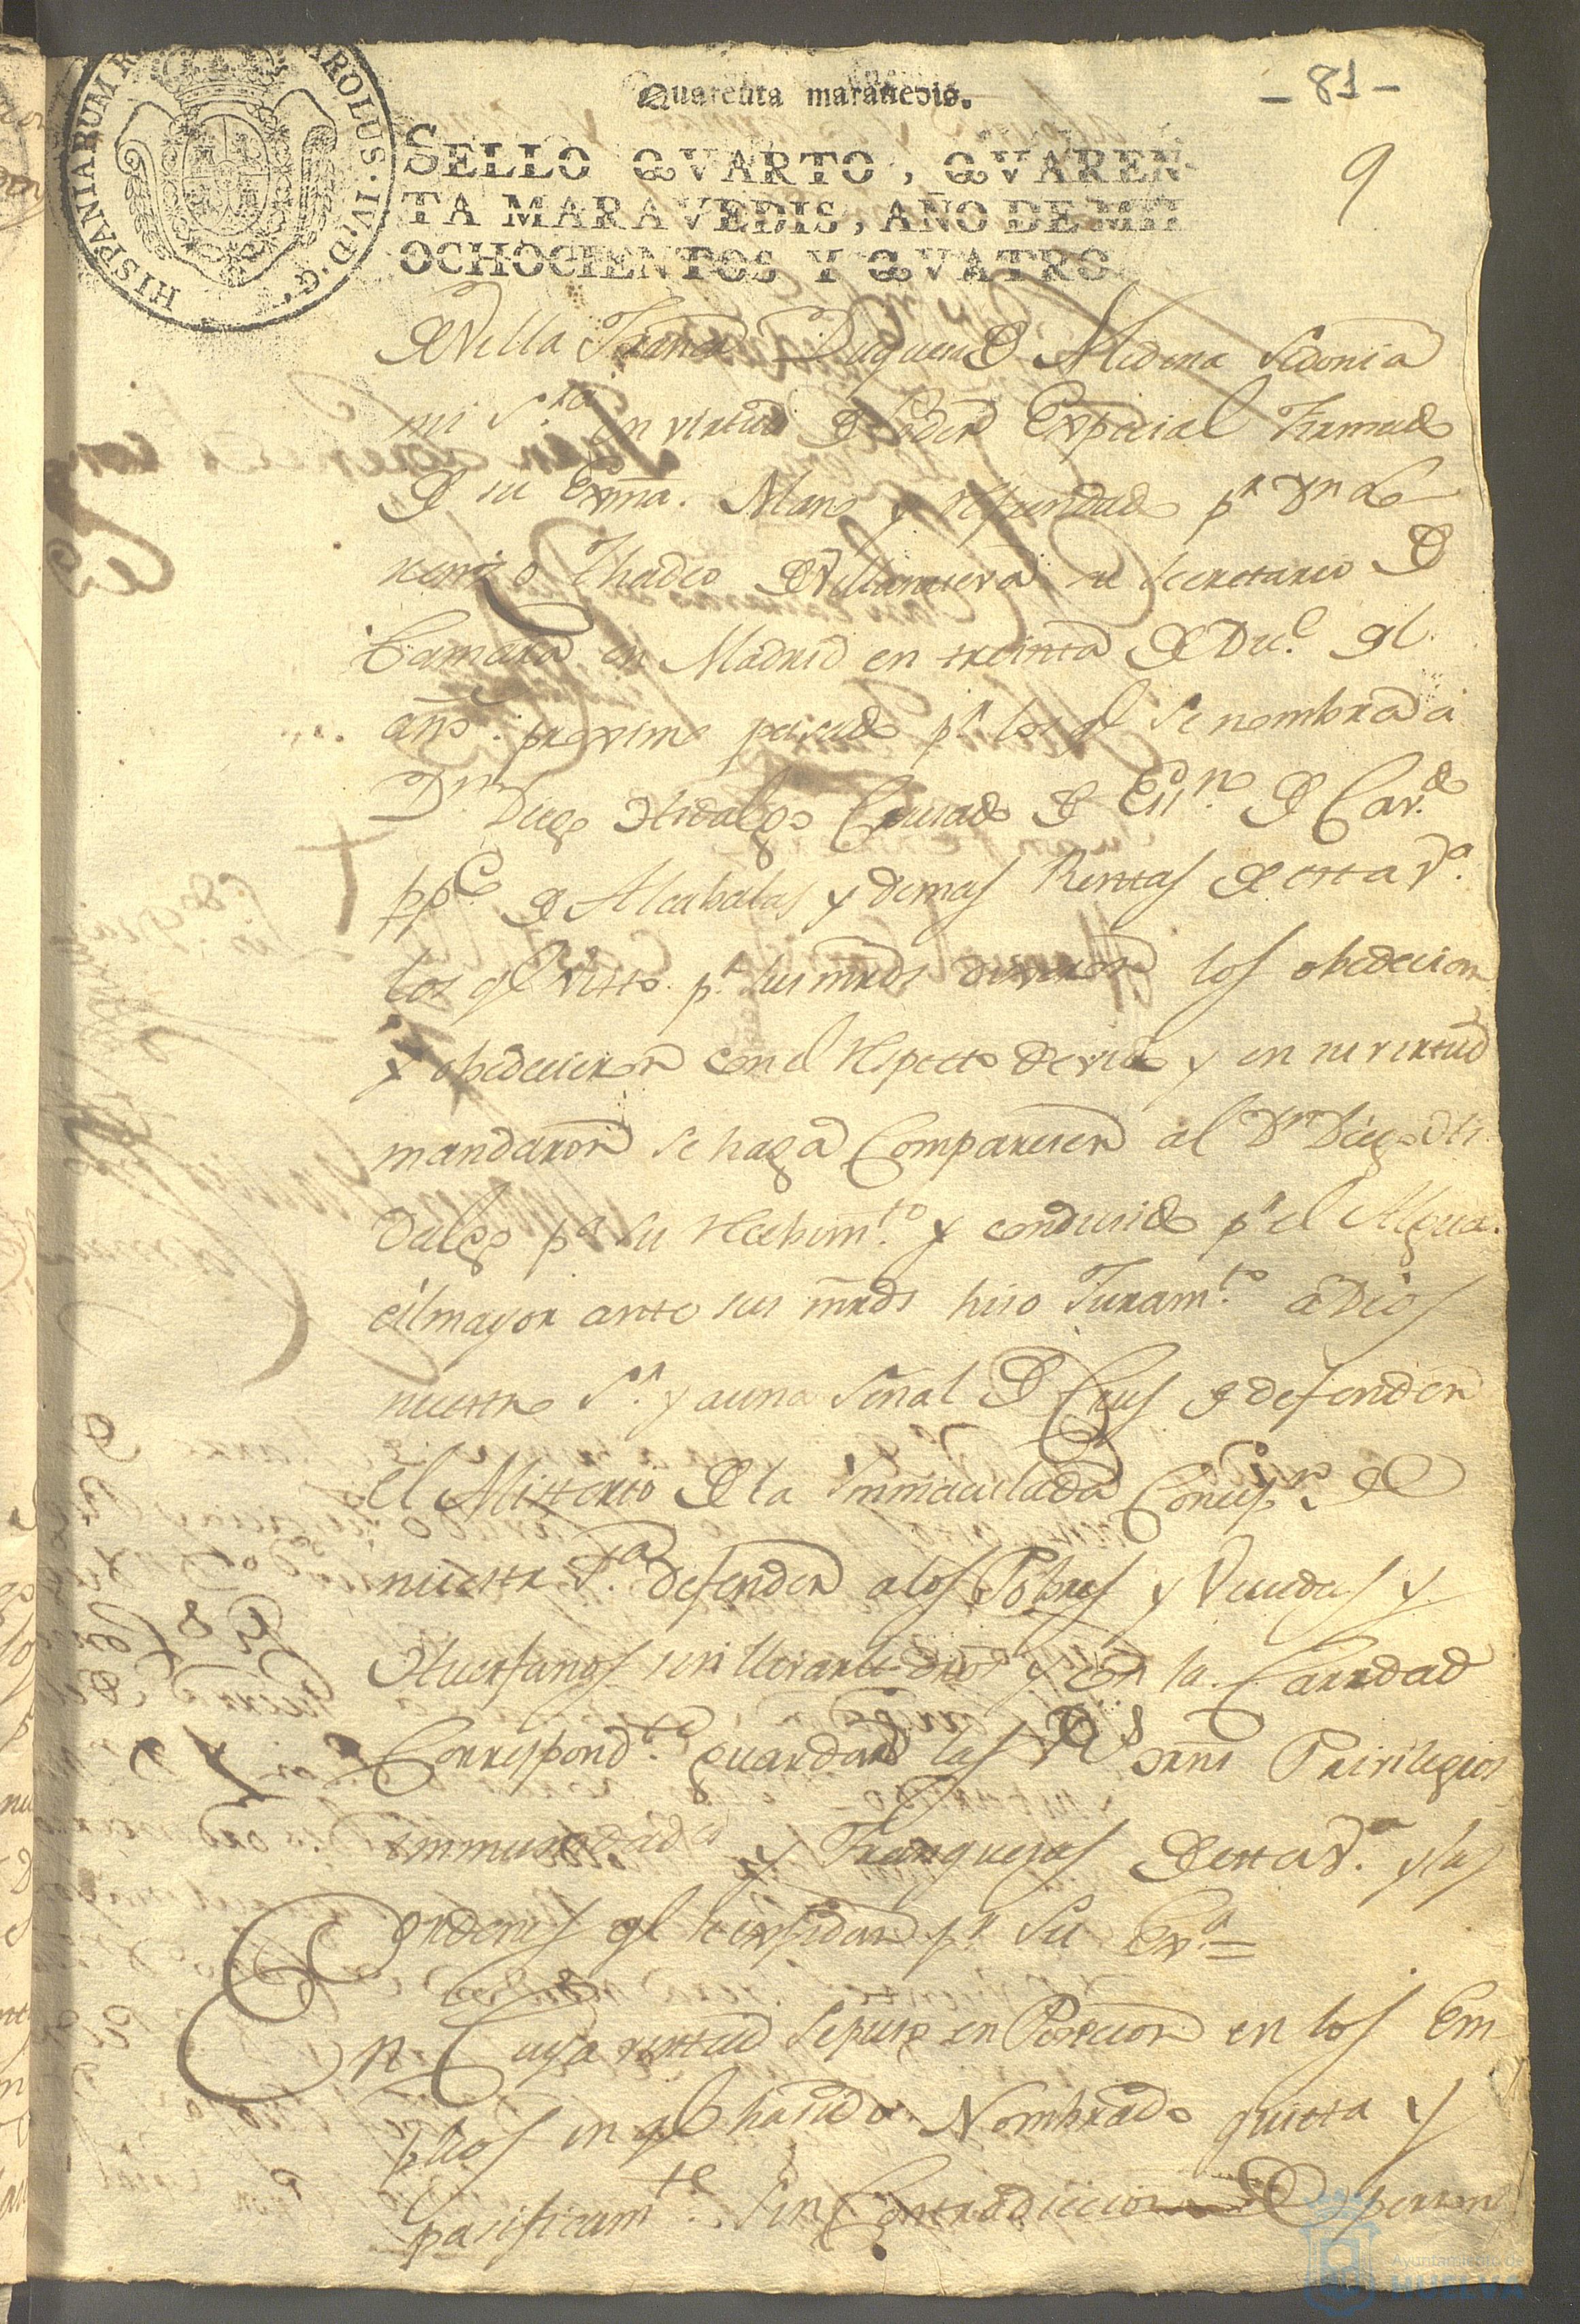 HISPANIARUM R CAROLUS.IV.D.G.
Quarenta maravedis.
- 81 -
9
SELLO QVARTO, QVAREN-
TA MARAVEDIS, AÑO DE MIL
OCHOCIENTOS Y QVATRO
de Villa Franca Duquesa de Medina Sidonia
mi S.ra En virtud de Poder Expecial Firmado
de su Exma. Mano y refrendado pr Dn Lo
renzo Thadeo de Villanueva su Secretario de
Camara en Madrid en treinta de Dic.e del
año proximo pasado pr los ql se nombrada a
Dn Diego Hidalgo Cruzado de Essno de Cav.do
ppco de Alcabalas y demas Rentas de esta Va.
los ql Visto pr sus mrds dixeron los obedecian
y obedecieron con el respecto devido y en su virtud
mandaron se haga Comparecer al Dn Diego Hi
dalgo pa su recibim.to y conducido pr el Algua-
cil mayor ante sus mrds hiso Juram.to a Dios
nuestro Sr. y a una Señal de Crus de defender
el Misterio de la Inmaculada Concepn. de
nuestra Sa. defender a los Pobres y Viudas y
Huerfanos sin llevarle dros y con la Caridad
Correspond.te guardar las Rs orns Privilegios
immunidades y Franquesas de esta Va. y las
ordenes ql le expidan pr Su Exa. =
En Cuya virtud se puso en Posecion en los Em-
pleos en ql ha sido Nombrado quieta y
pasificam.te Sin Contradiccion de persona
Ayuntamiento de
HUELVA